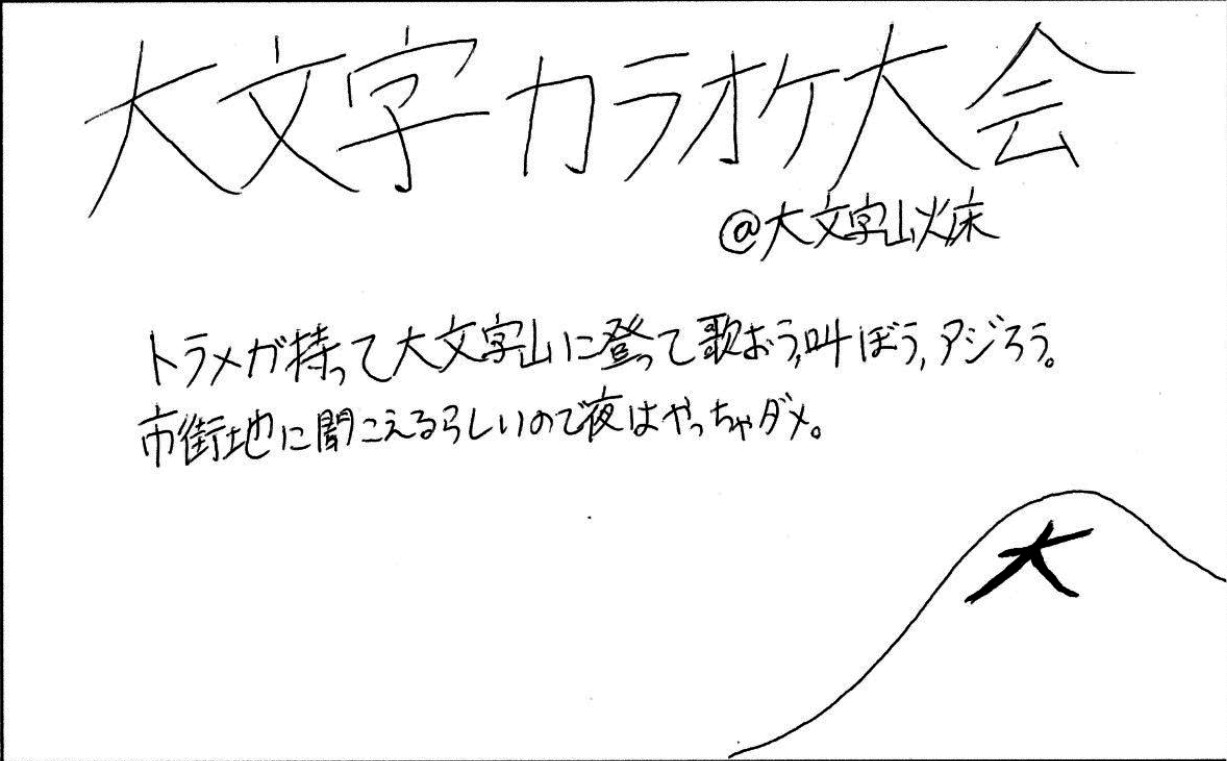 大文字カラオケ大会
@大文字山火床
トラメガ持って大文字山に登って歌おう,叫ぼう,アジろう。
市街地に聞こえるらしいので夜はやっちゃダメ。
大